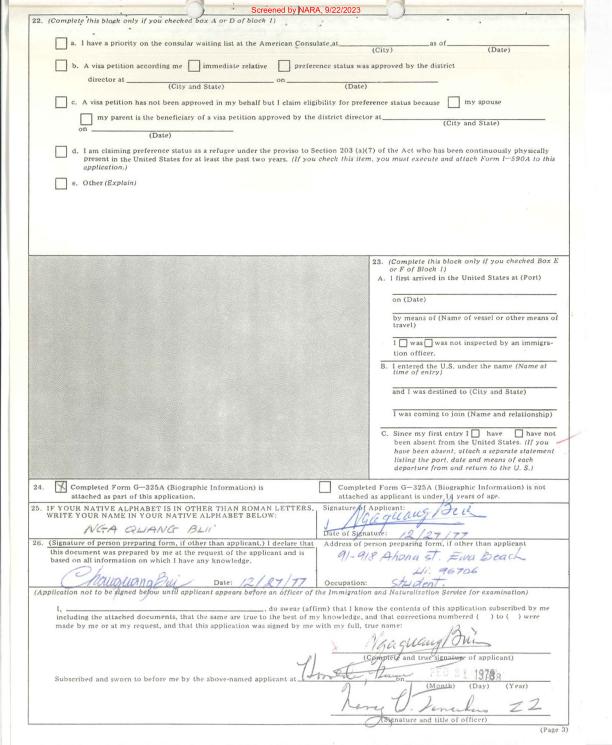 Screened by NARA, 9/22/2023
22. (Complete this block only if you checked box A or D of block 1)
a. I have a priority on the consular waiting list at the American Consulate at as of
(City) (Date)
b. A visa petition according me immediate relative preference status was approved by the district
director at on
(City and State) (Date)
c. A visa petition has not been approved in my behalf but I claim eligibility for preference status because my spouse
my parent is the beneficiary of a visa petition approved by the district director at
(City and State)
on
(Date)
d. I am claiming preference status as a refugee under the proviso to Section 203 (a)(7) of the Act who has been continuously physically
present in the United States for at least the past two years. (If you check this item, you must execute and attach Form I-590A to this
application.)
e. Other (Explain)
23. (Complete this block only if you checked Box E
or F of Block 1)
A. I first arrived in the United States at (Port)
on (Date)
by means of (Name of vessel or other means of
travel)
I was was not inspected by an immigra-
tion officer.
B. I entered the U.S. under the name (Name at
time of entry)
and I was destined to (City and State)
I was coming to join (Name and relationship)
C. Since my first entry I have have not
been absent from the United States. (If you
have been absent, attach a separate statement
listing the port, date and means of each
departure from and return to the U. S.)
24. X Completed Form G-325A (Biographic Information) is
attached as part of this application.
Completed Form G-325A (Biographic Information) is not
attached as applicant is under 14 years of age.
25. IF YOUR NATIVE ALPHABET IS IN OTHER THAN ROMAN LETTERS,
WRITE YOUR NAME IN YOUR NATIVE ALPHABET BELOW:
NGA QUANG BUI
Signature of Applicant:
Ngaquang Bui
Date of Signature: 12/27/77
26. (Signature of person preparing form, if other than applicant.) I declare that
this document was prepared by me at the request of the applicant and is
based on all information on which I have any knowledge.
Date: 12/27/77
Address of person preparing form, if other than applicant
91-918 Ahona St. Ewa Beach
Hi. 96706
Occupation: student.
(Application not to be signed before until applicant appears before an officer of the Immigration and Naturalization Service for examination)
I, , do swear (affirm) that I know the contents of this application subscribed by me
including the attached documents, that the same are true to the best of my knowledge, and that corrections numbered ( ) to ( ) were
made by me or at my request, and that this application was signed by me with my full, true name:
Ngaquang Bui
(Complete and true signature of applicant)
Subscribed and sworn to before me by the above-named applicant at on 1978
(Month) (Day) (Year)
(Signature and title of officer)
(Page 3)